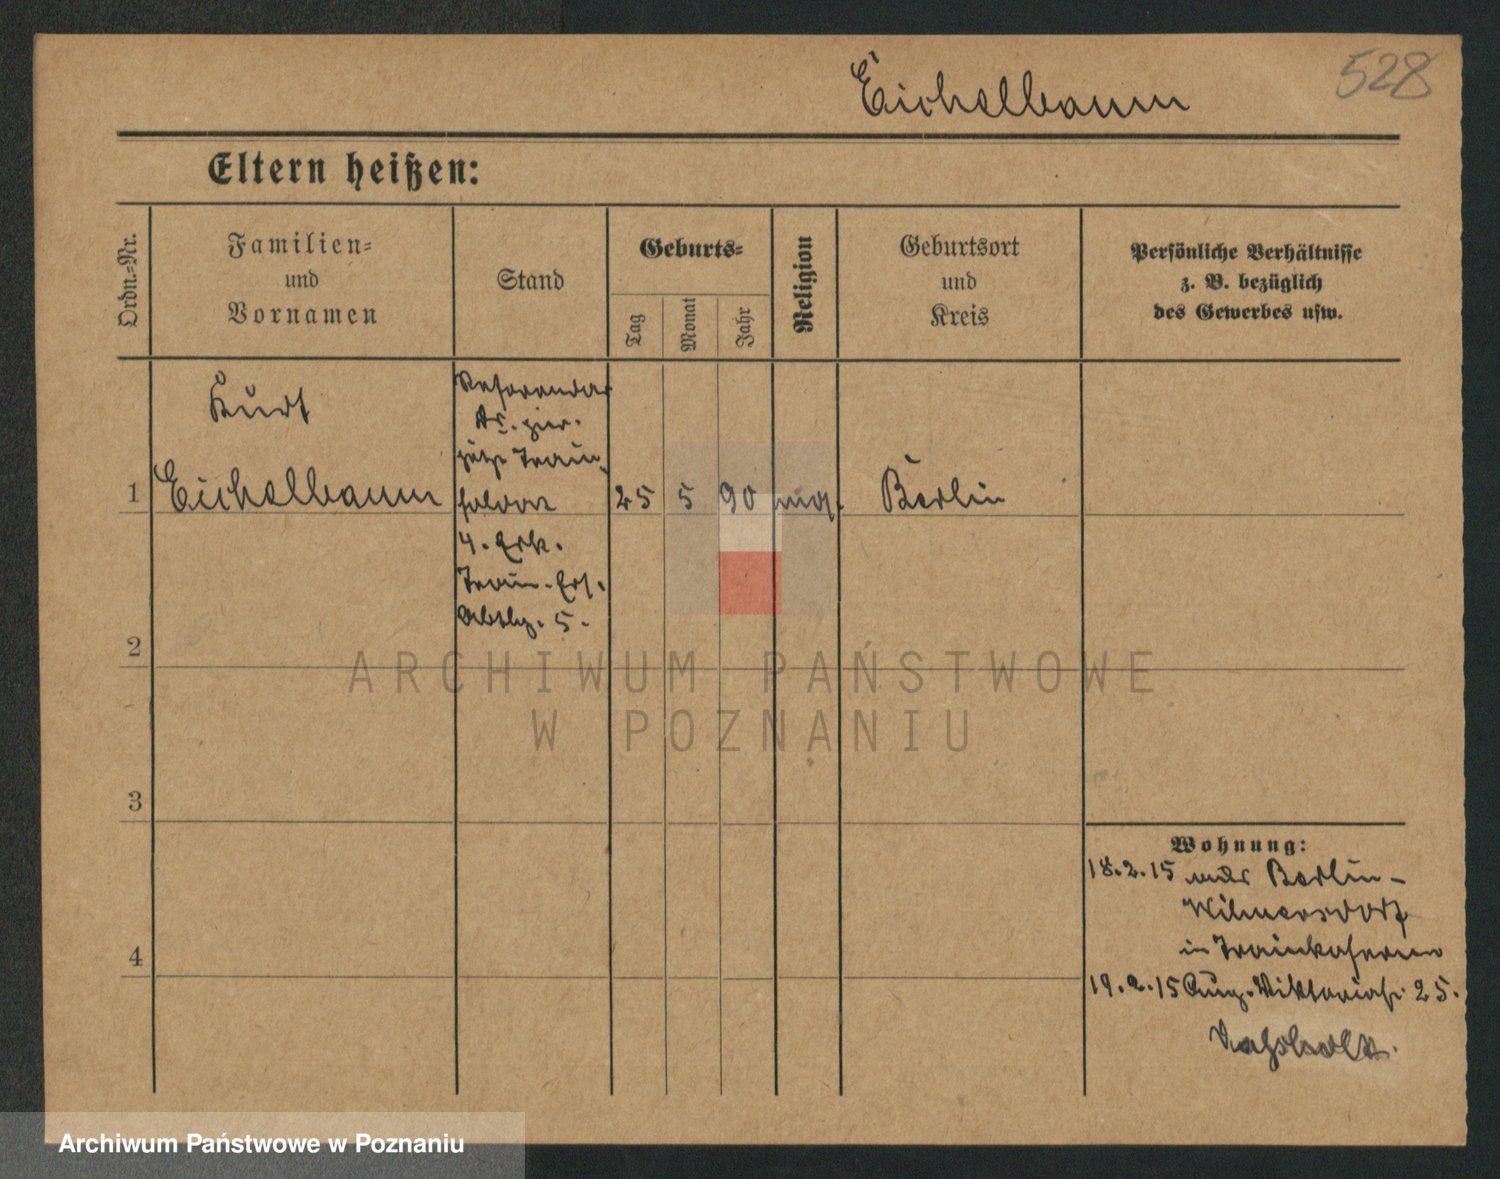 528
Eichelbaum
Eltern heißen:
Ordn.-Nr.
Familien-
und
Vornamen
Stand
Geburts-
Tag
Monat
Jahr
Religion
Geburtsort
und
Kreis
Persönliche Verhältnisse
z. B. bezüglich
des Gewerbes usw.
Kurt
1 Eichelbaum
Referendar
jetzt Train-
soldat
4. Esk.
Train-Ers.
Abtlg. 5.
25 5 90
Berlin
2
3
4
Wohnung:
18.2.15 aus Berlin-
Wilmersdorf
in Trainkaserne
19.2.15 Aug. Viktoriastr. 25.
ARCHIWUM PAŃSTWOWE
W POZNANIU
Archiwum Państwowe w Poznaniu